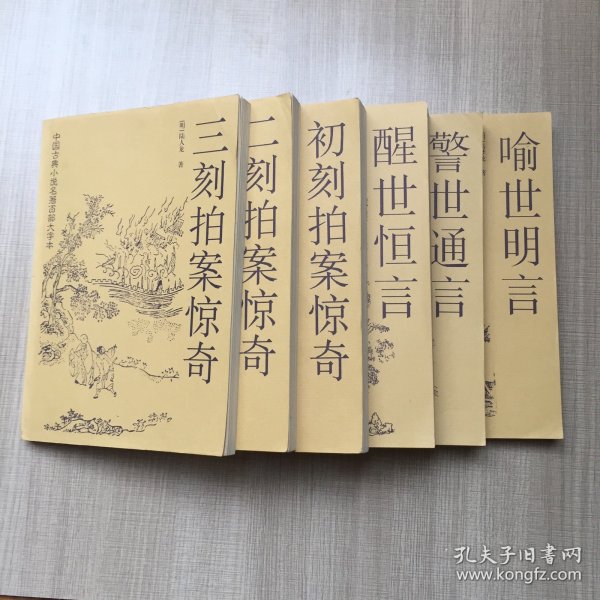 中国古典小说名著百部大字本
[明]陆人龙 著
三刻拍案惊奇
二刻拍案惊奇
初刻拍案惊奇
醒世恒言
警世通言
喻世明言
孔夫子旧书网
www.kongfz.com